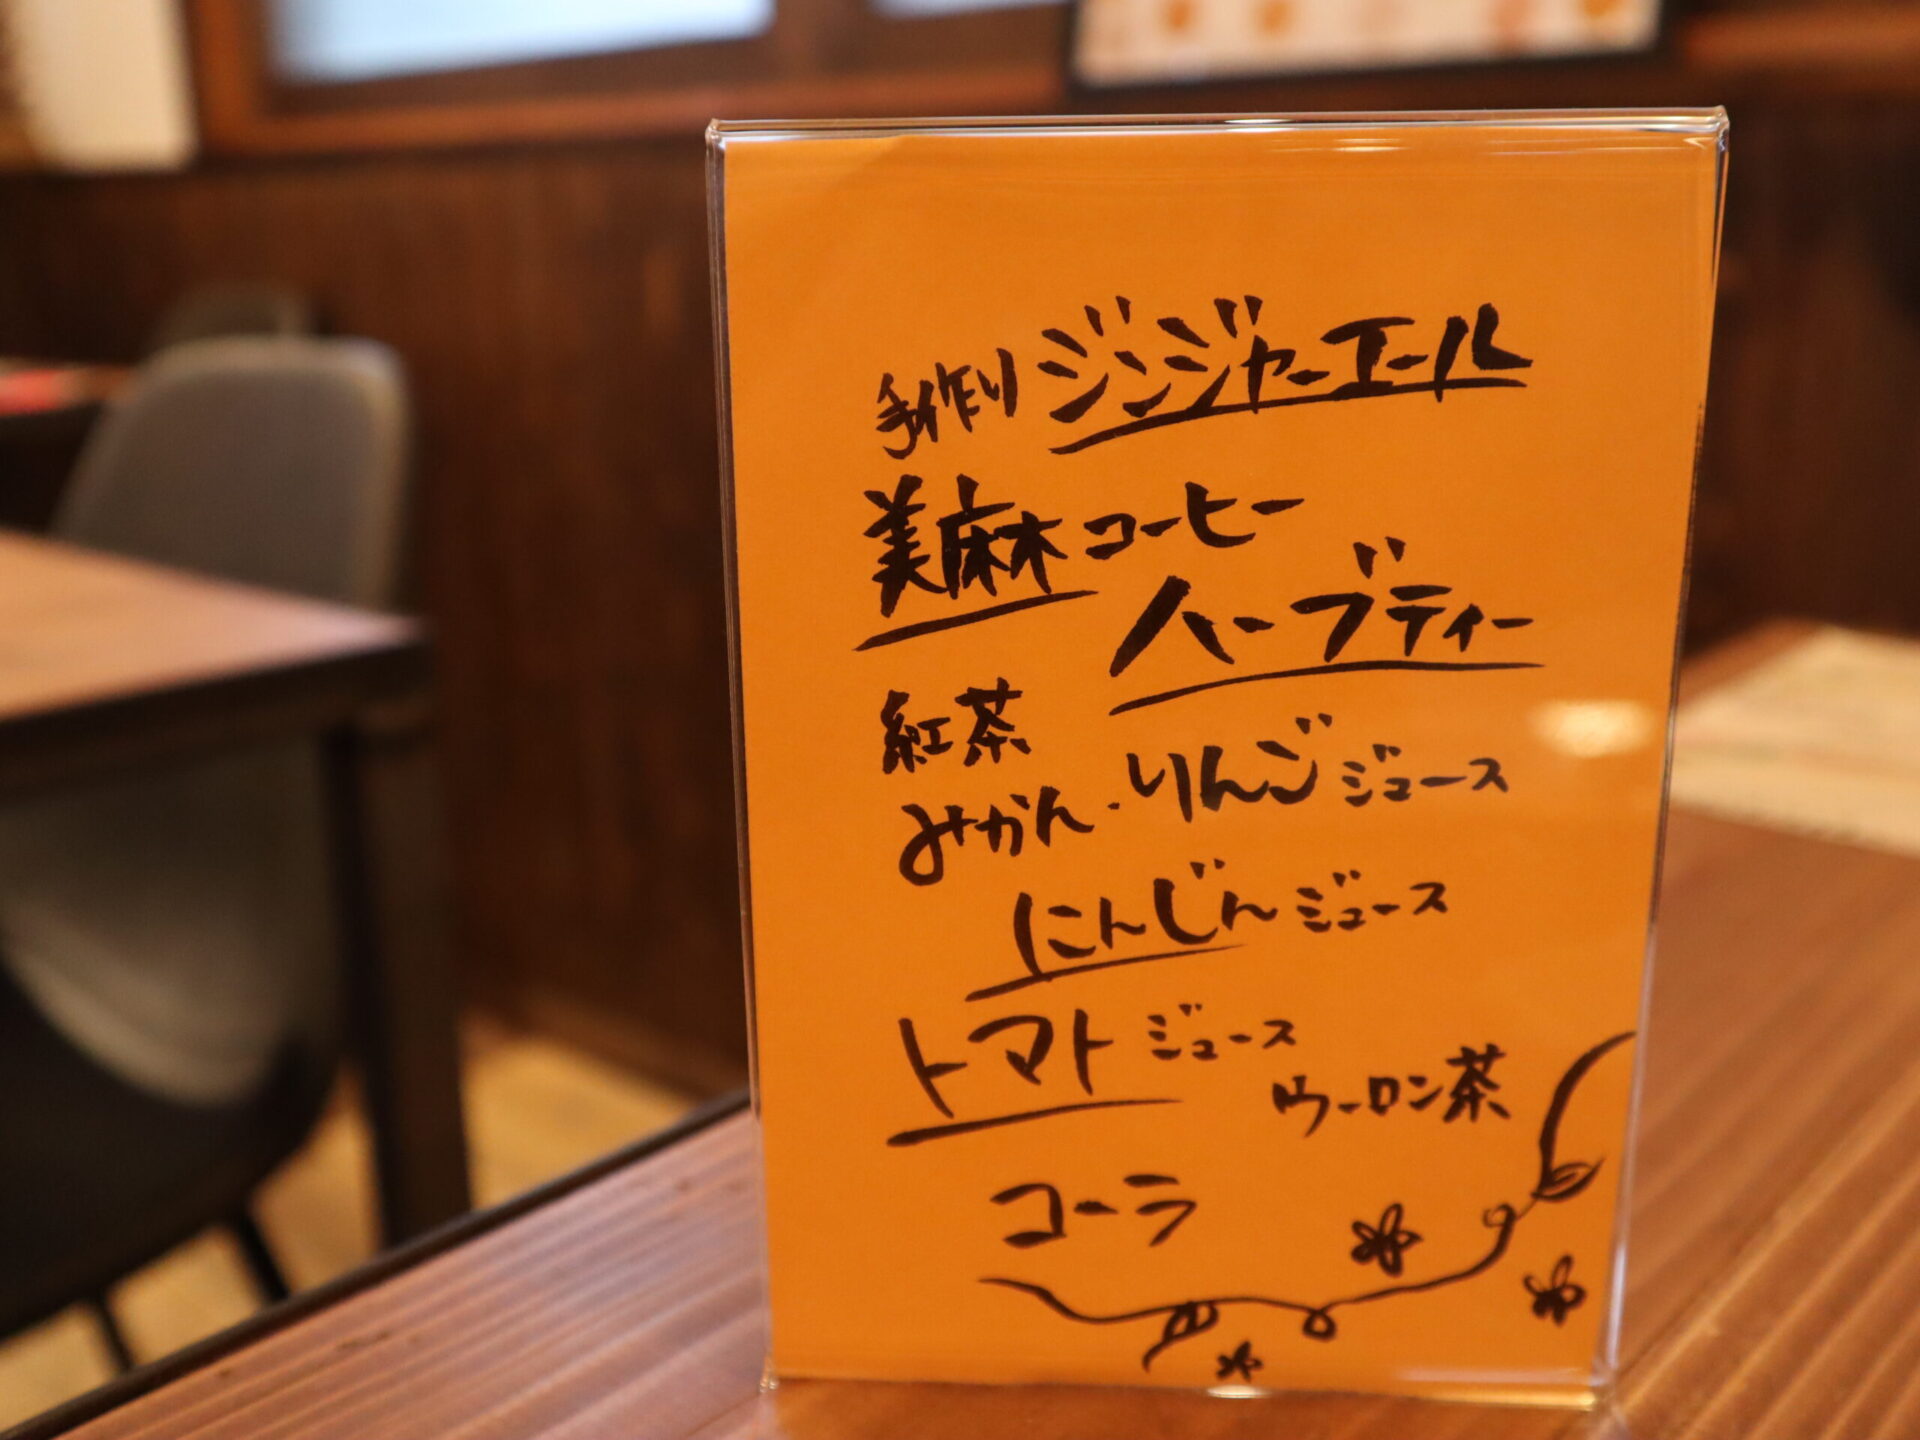 手作りジンジャーエール
美麻コーヒー
ハーブティー
紅茶
みかん・りんごジュース
にんじんジュース
トマトジュース
ウーロン茶
コーラ